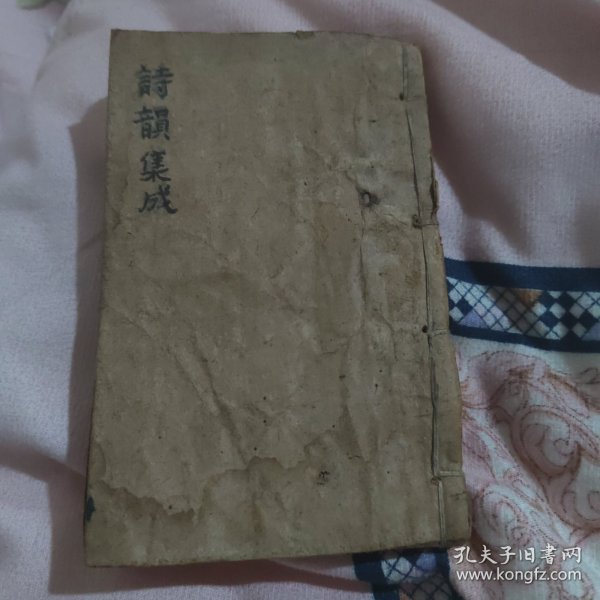 詩韻集成
孔夫子旧书网
www.kongfz.com